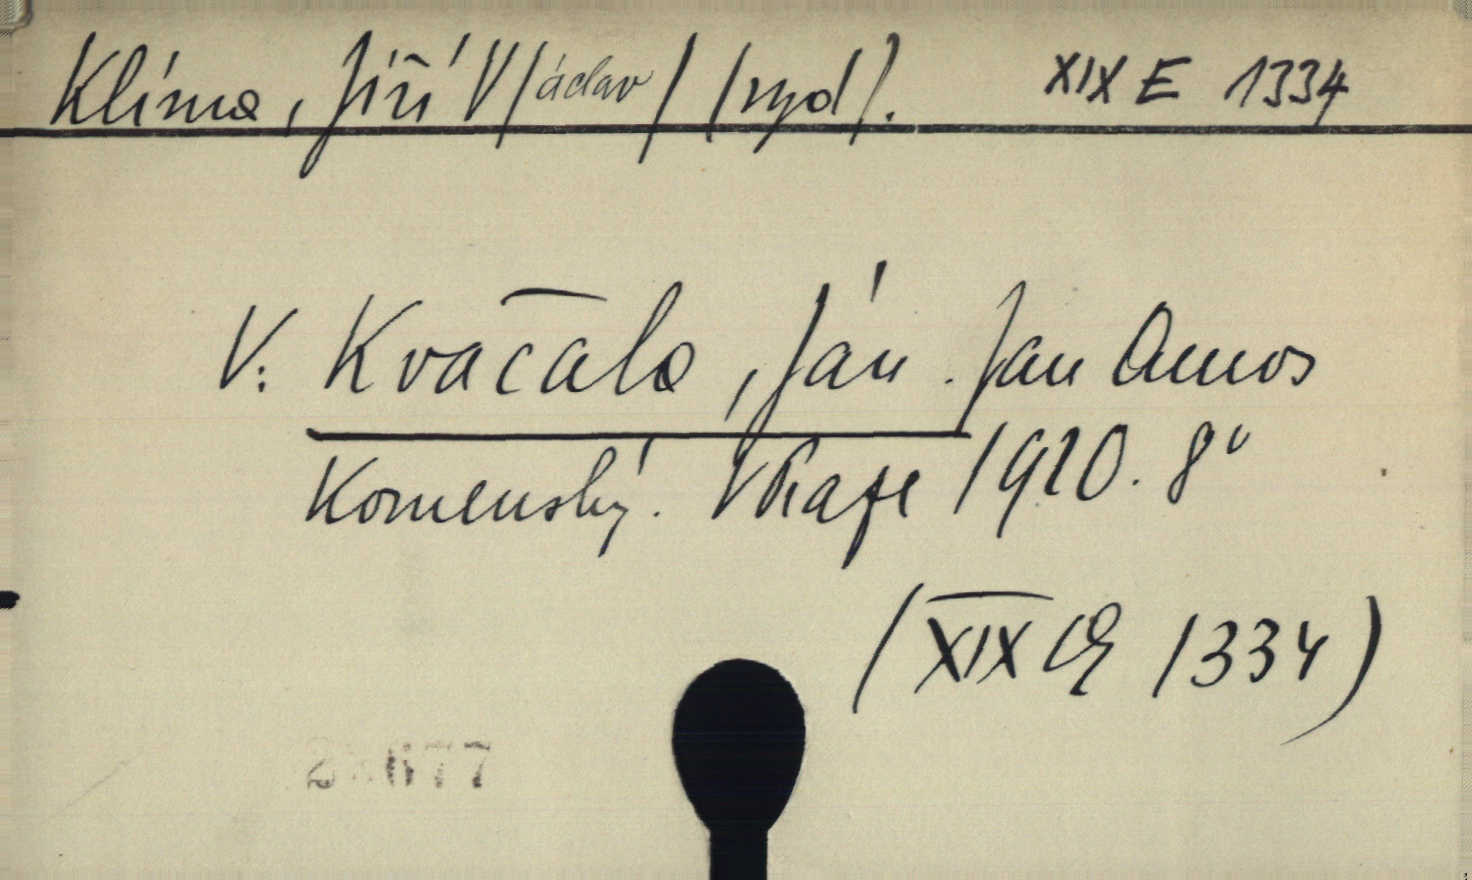 Klíma, Jiří V/áclav/ /vyd/. XIX E 1334
V: Kvačala, Ján. Jan Amos
Komenský. V Praze 1920. 8°
(XIX E 1334)